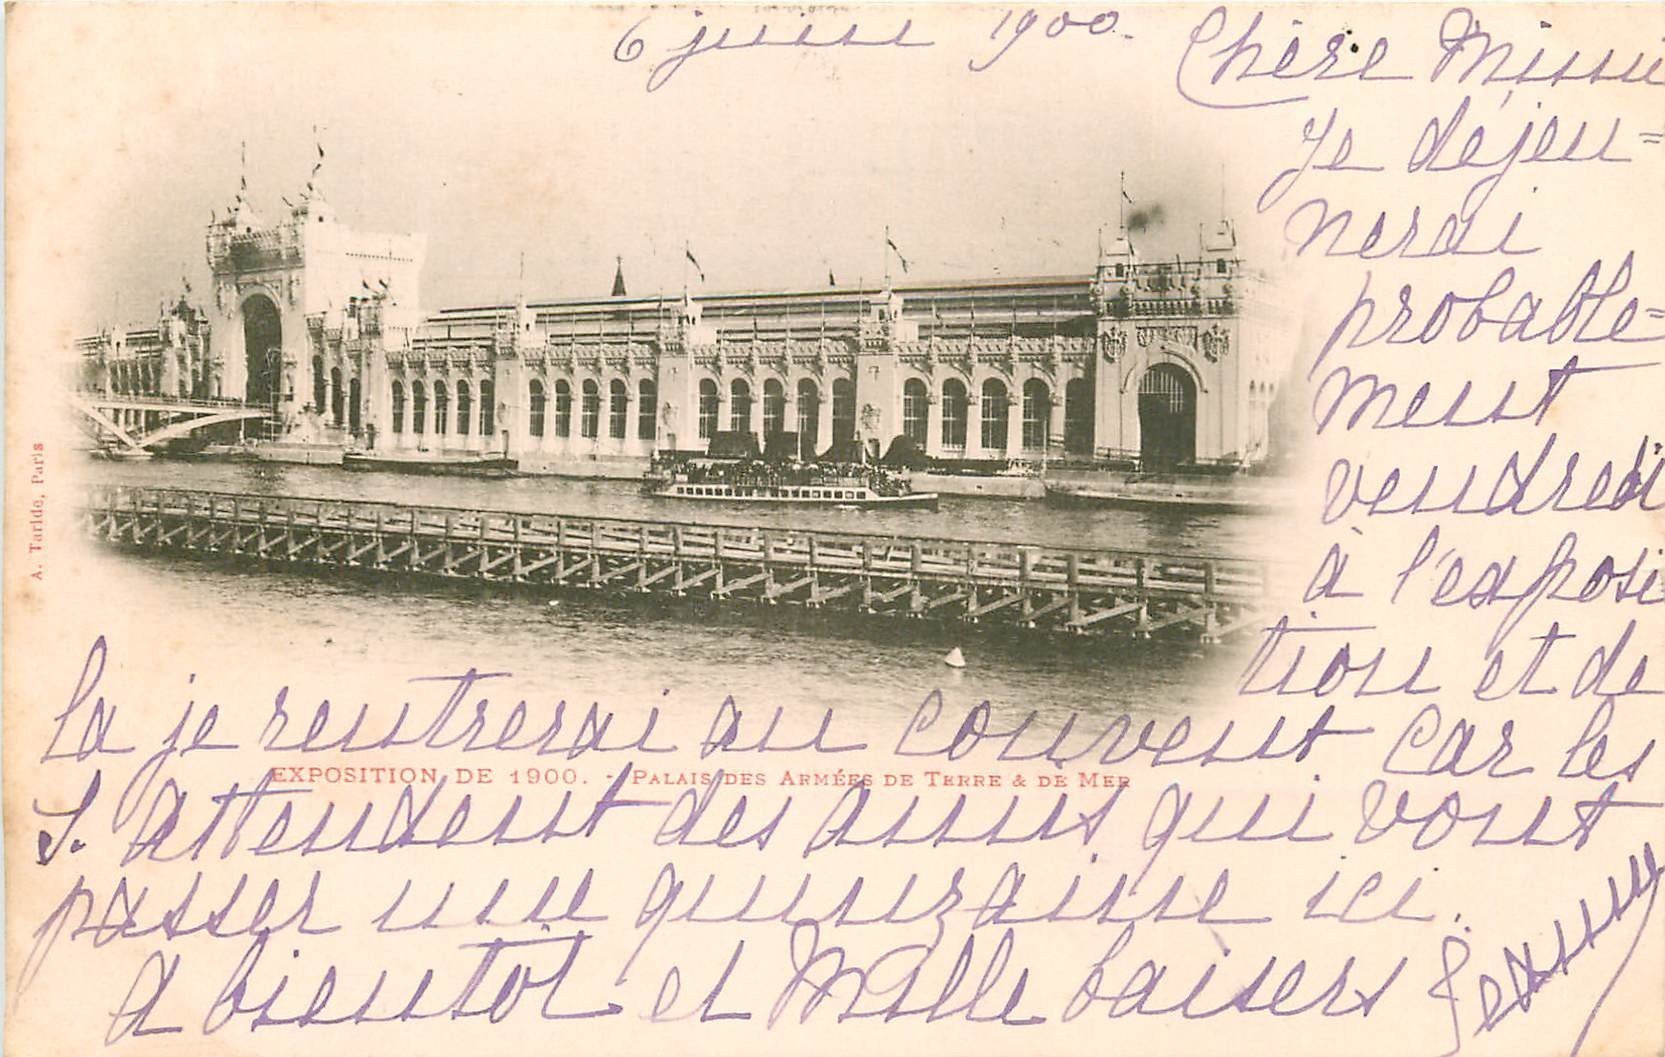 6 juin 1900. Chère Missie
Je déjeu=
nerai
probable=
ment
vendredi
à l'exposi
tion et de
la je rentrerai au couvent car les
EXPOSITION DE 1900. - PALAIS DES ARMÉES DE TERRE & DE MER
J. attendent des amis qui vont
passer une quinzaine ici.
A bientôt et Mille baisers
A. Taride, Paris